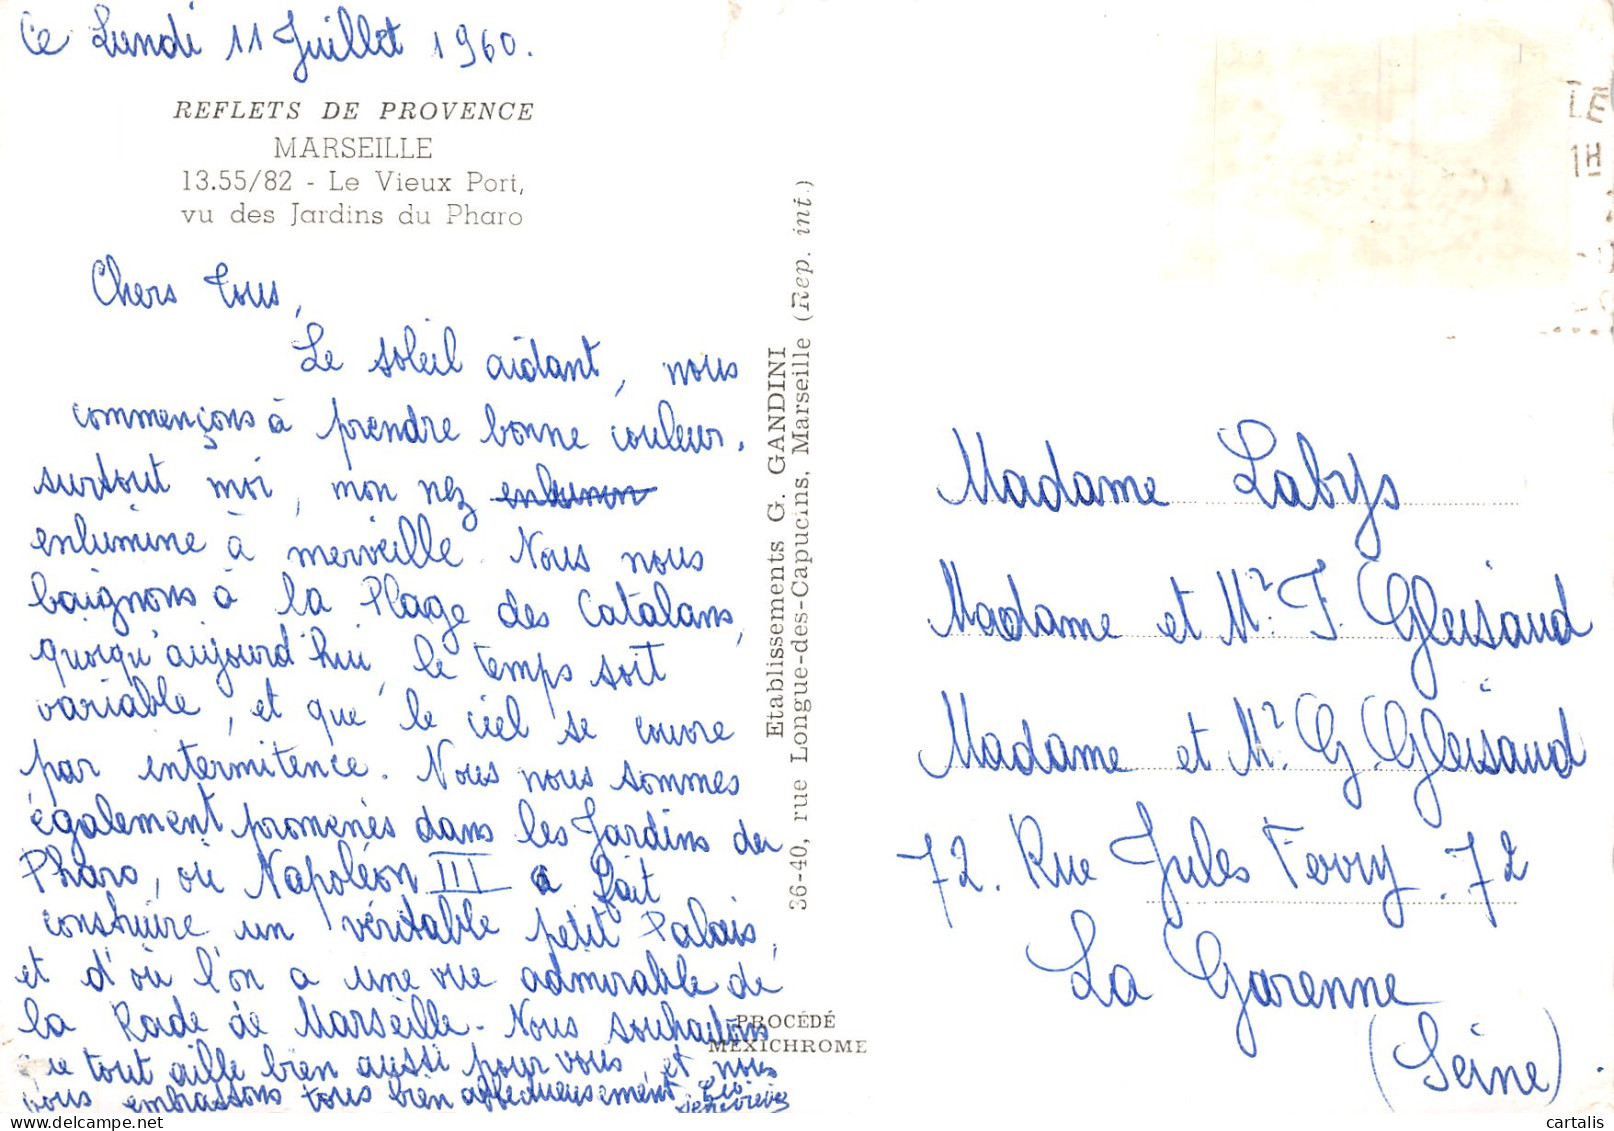 Ce Lundi 11 Juillet 1960.
REFLETS DE PROVENCE
MARSEILLE
13.55/82 - Le Vieux Port,
vu des Jardins du Pharo
Chers Tous,
Le soleil aidant, nous
commençons à prendre bonne couleur.
surtout moi, mon nez
enlumine à merveille. Nous nous
baignons à la Plage des Catalans,
quoiqu'aujourd'hui, le temps soit
variable, et que le ciel se couvre
par intermitence. Nous nous sommes
également promenés dans les Jardins du
Pharo, où Napoléon III a fait
construire un véritable petit Palais,
et d'où l'on a une vue admirable de
la Rade de Marseille. Nous souhaitons
que tout aille bien aussi pour vous, et nous
vous embrassons tous bien affectueusement
Geneviève
Etablissements G. GANDINI
36-40, rue Longue-des-Capucins, Marseille (Rep. int.)
PROCÉDÉ
MEXICHROME
LE
1H
Madame Labys
Madame et Mr. F. Gleisaud
Madame et Mr. G. Gleisaud
72. Rue Jules Ferry. 72
La Garenne
(Seine).
cartalis
www.delcampe.net